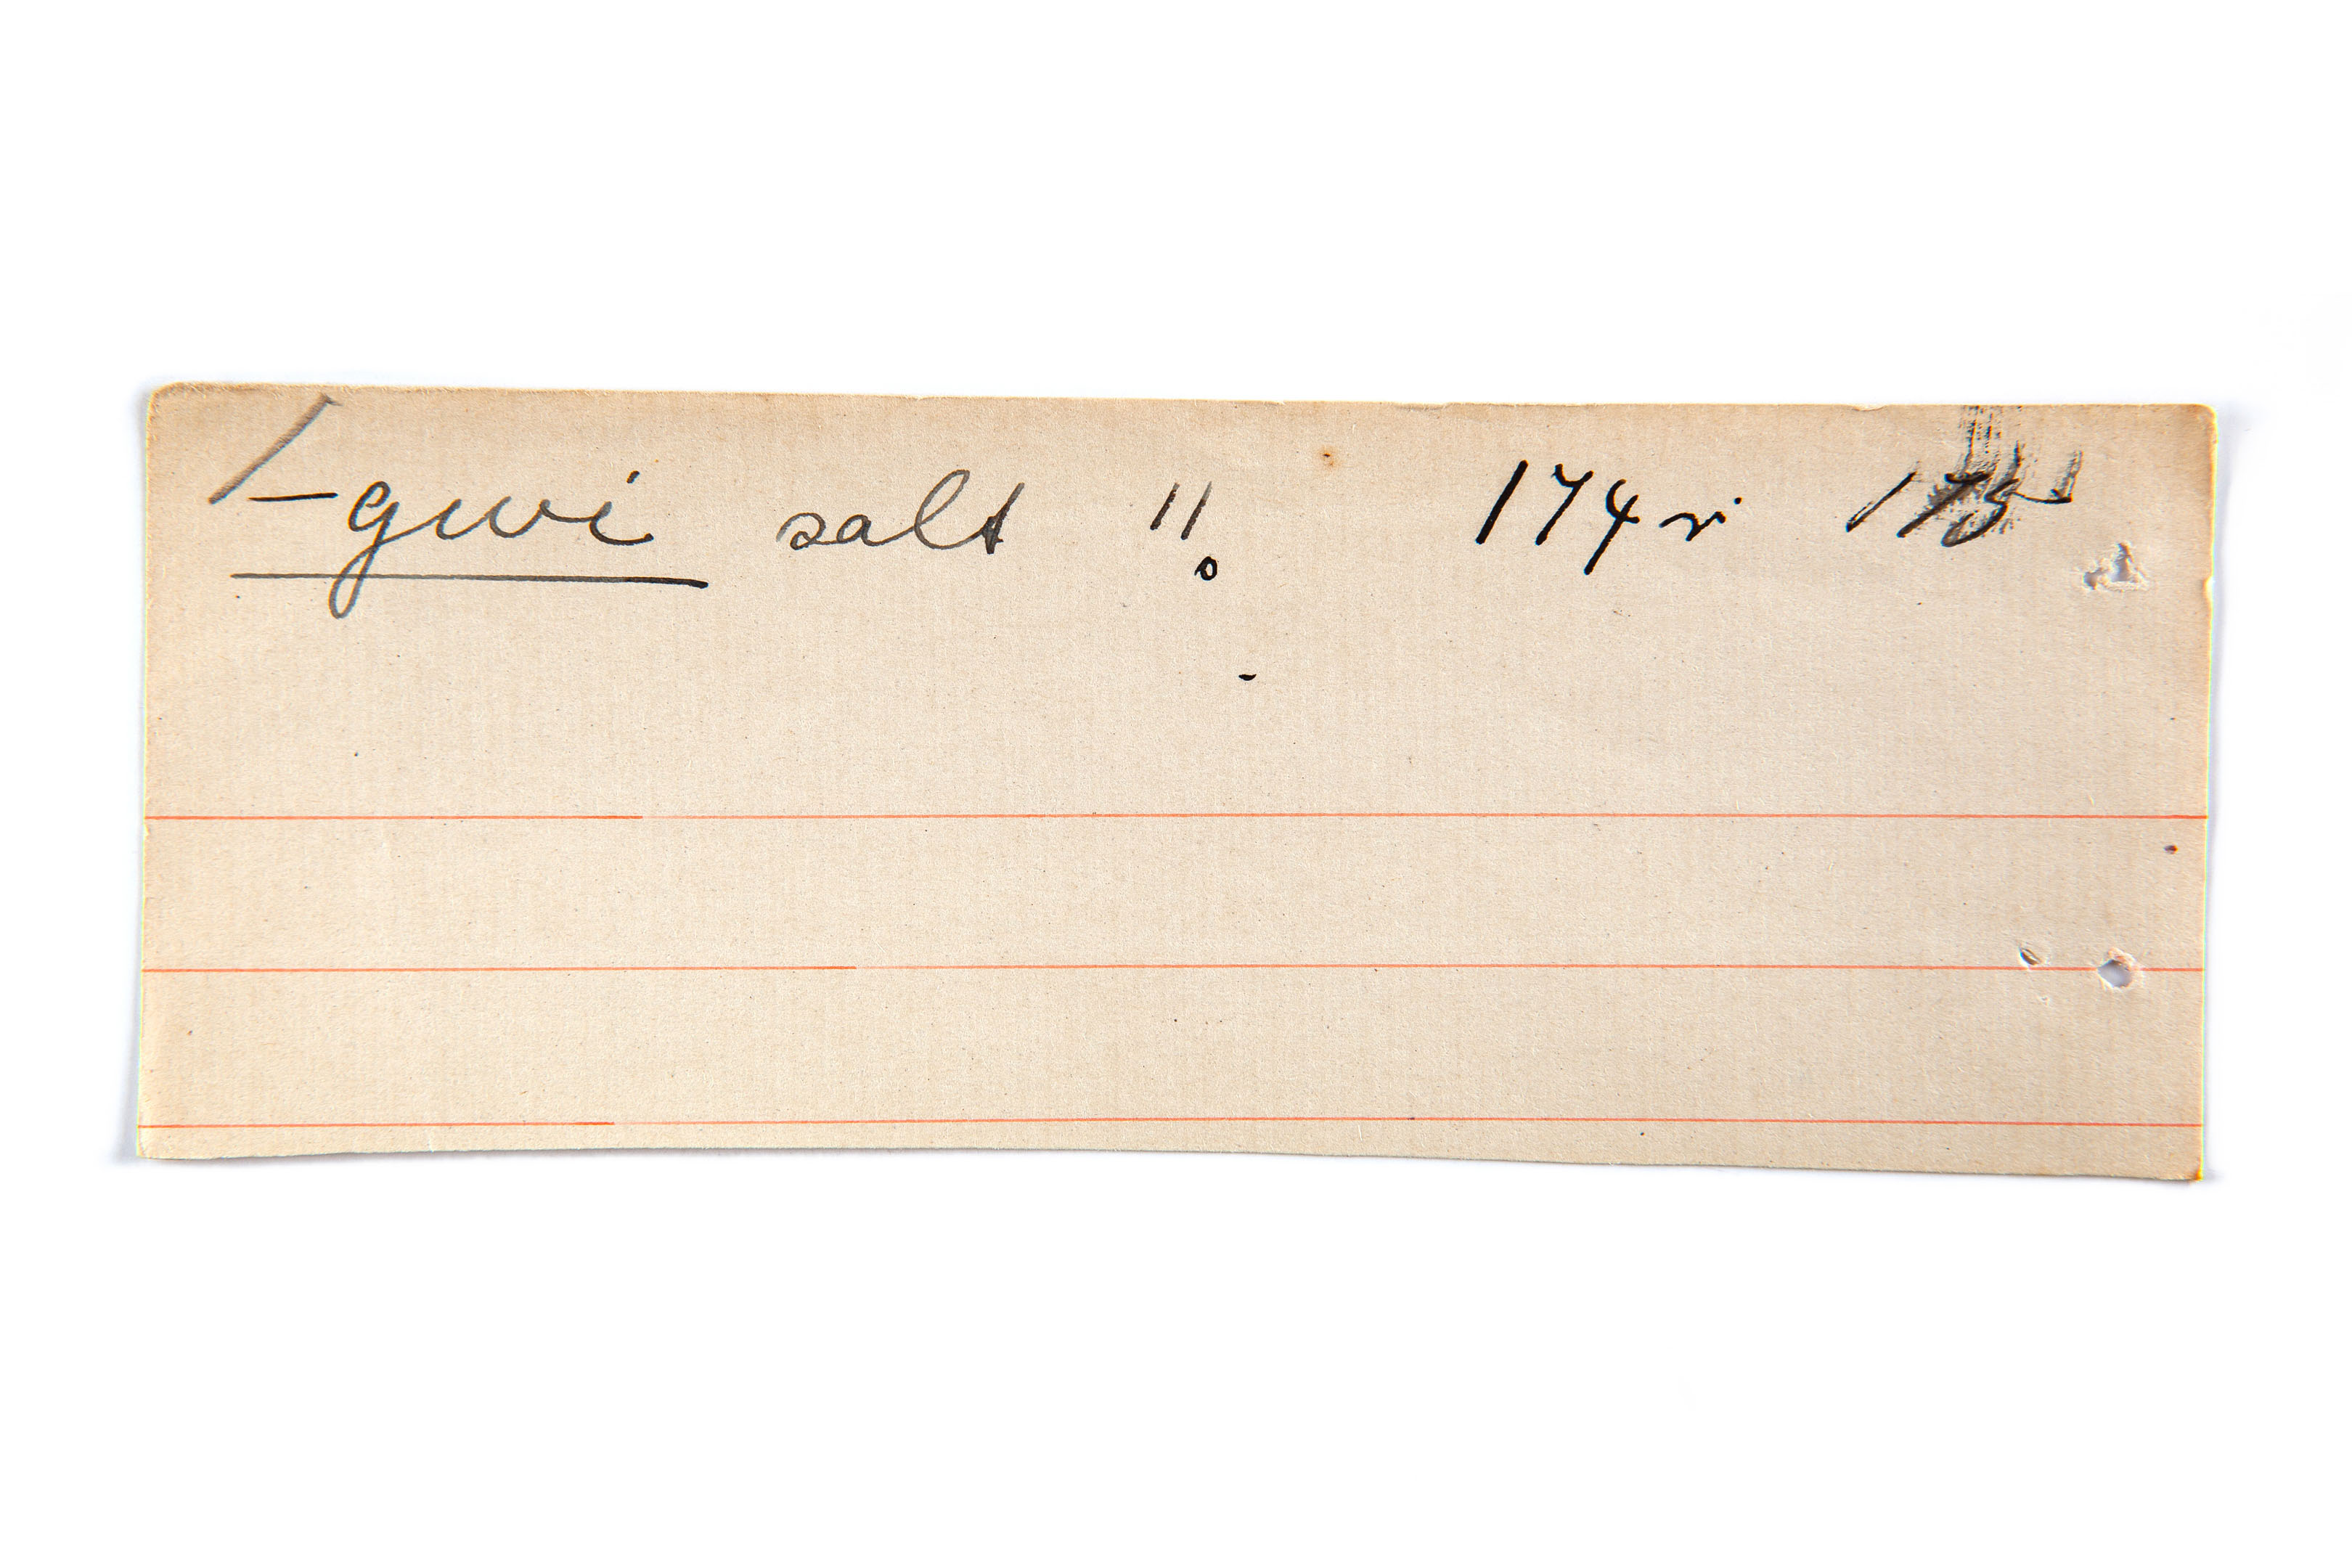 -gwi salt 11. 174r 175